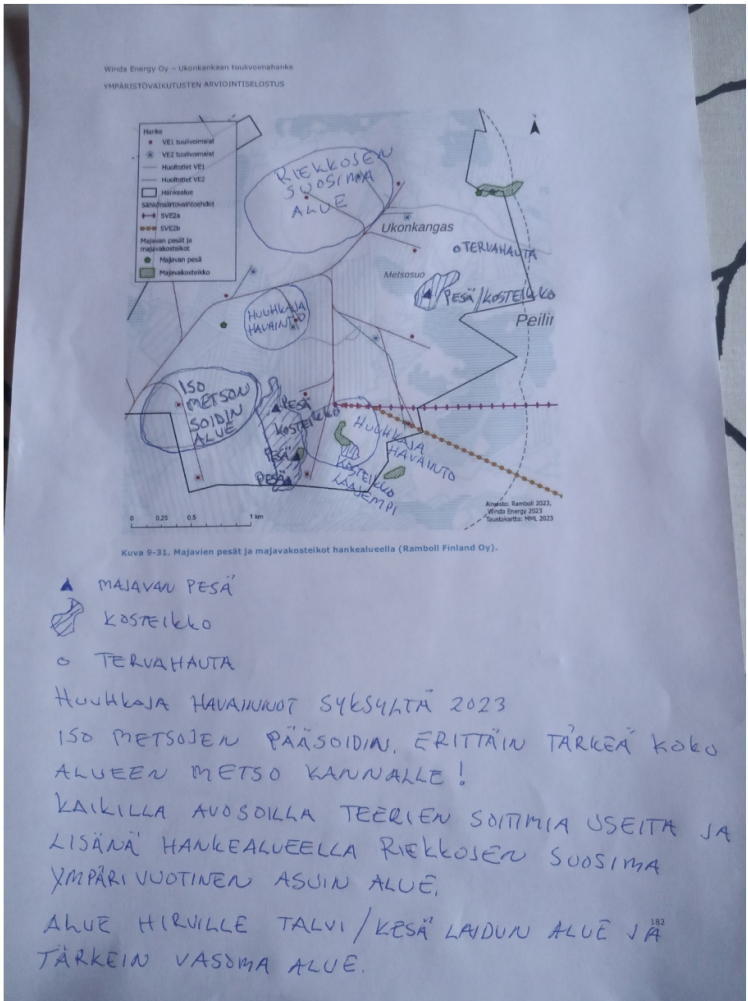 Winda Energy Oy – Ukonkankaan tuulivoimahanke
YMPÄRISTÖVAIKUTUSTEN ARVIOINTISELOSTUS
Hanke
VE1 tuulivoimalat
VE2 tuulivoimalat
Huoltotiet VE1
Huoltotiet VE2
Hankealue
Sähkönsiirtovaihtoehdot
SVE2a
SVE2b
Majavan pesät ja
majavakosteikot
Majavan pesä
Majavakosteikko
RIEKKOSEN
SUOSIMA
ALUE
Ukonkangas
TERVAHAUTA
Metsosuo
PESÄ/KOSTEIKKO
Peilir
HUUHKAJA
HAVAINTO
ISO
METSON
SOIDIN
ALUE
PESÄ
KOSTEIKKO
PESÄ
PESÄ
HUUHKAJA
HAVAINTO
KOSTEIKKO
LAAJEMPI
0 0,25 0,5 1 km
Aineisto: Ramboll 2023,
Winda Energy 2023
Taustakartta: MML 2023
Kuva 9-31. Majavien pesät ja majavakosteikot hankealueella (Ramboll Finland Oy).
MAJAVAN PESÄ
KOSTEIKKO
TERVAHAUTA
HUUHKAJA HAVAINNOT SYKSYLTÄ 2023
ISO METSOJEN PÄÄSOIDIN. ERITTÄIN TÄRKEÄ KOKO
ALUEEN METSO KANNALLE!
KAIKILLA AVOSOILLA TEERIEN SOITIMIA USEITA JA
LISÄNÄ HANKEALUEELLA RIEKKOSEN SUOSIMA
YMPÄRIVUOTINEN ASUIN ALUE.
182
ALUE HIRVILLE TALVI/KESÄ LAIDUN ALUE JA
TÄRKEIN VASOMA ALUE.